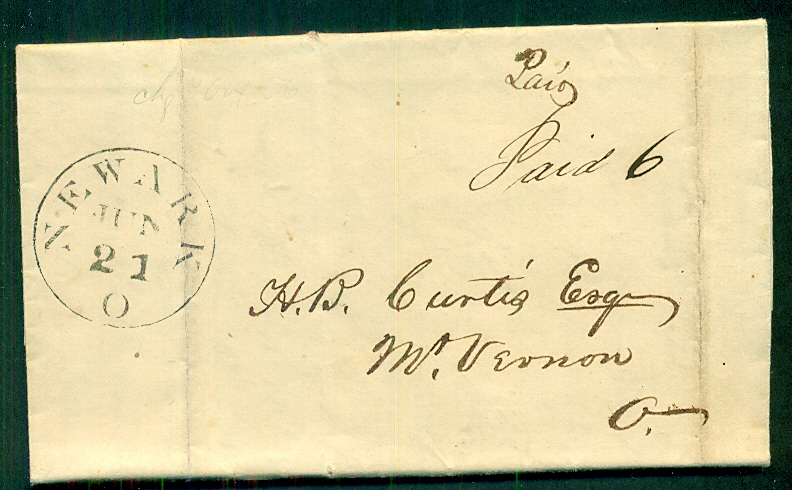 Paid
Paid 6
NEWARK
JUN
21
O
H.B. Curtis Esqr
Mt. Vernon
O.